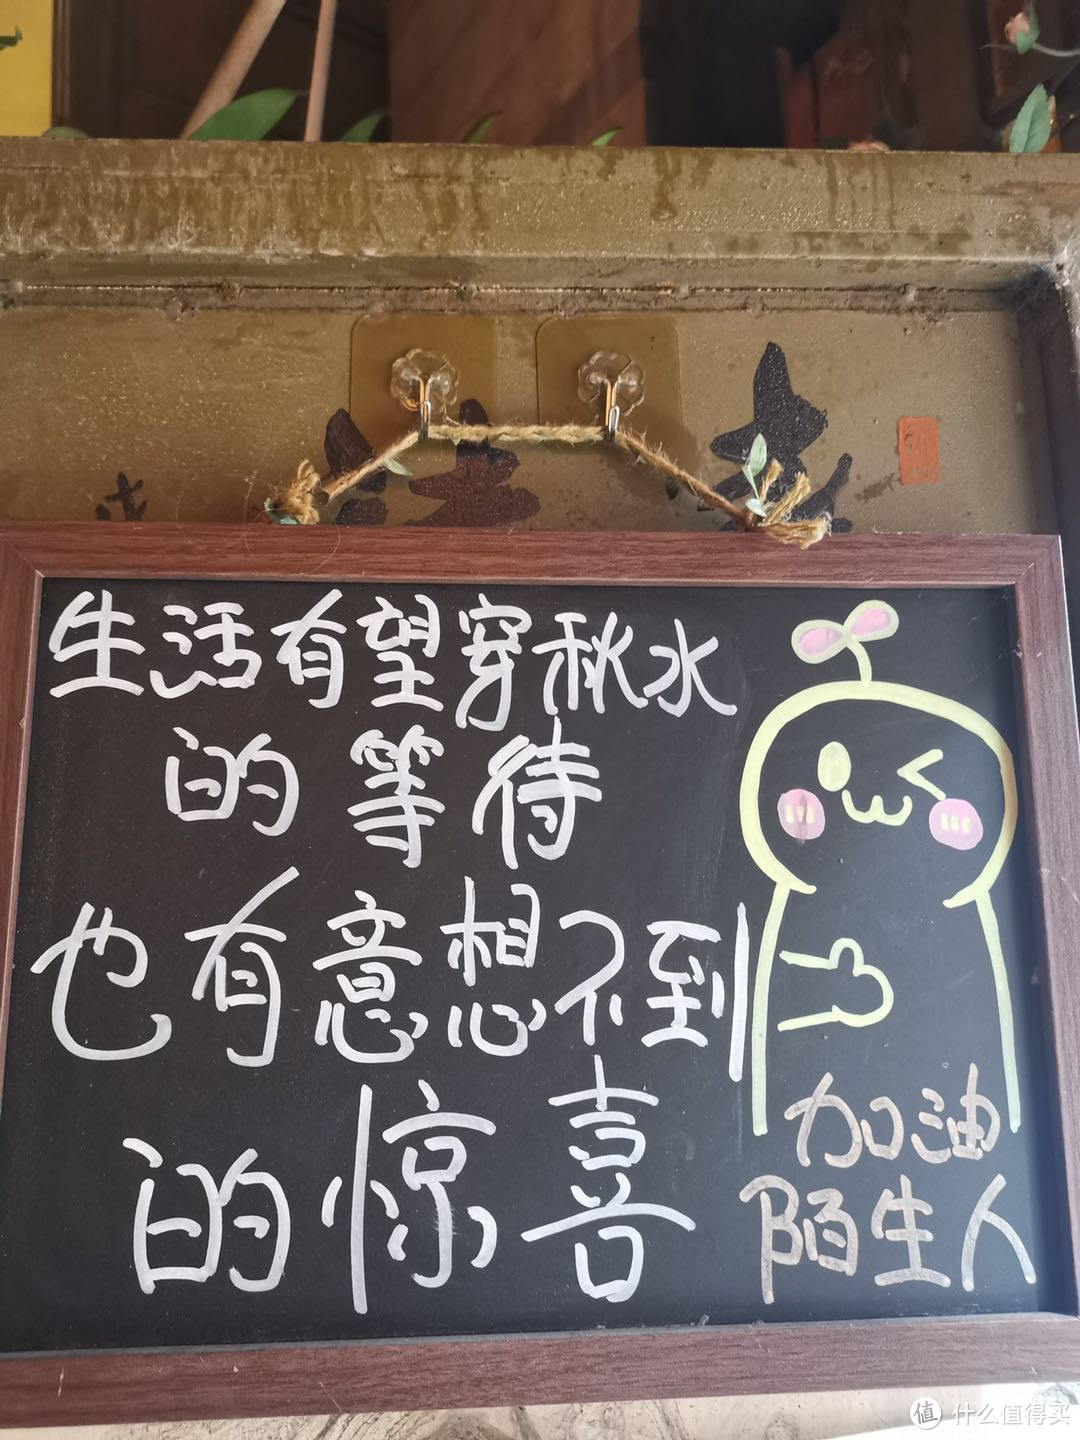 生活有望穿秋水
的等待
也有意想不到
的惊喜
加油
陌生人
值 什么值得买